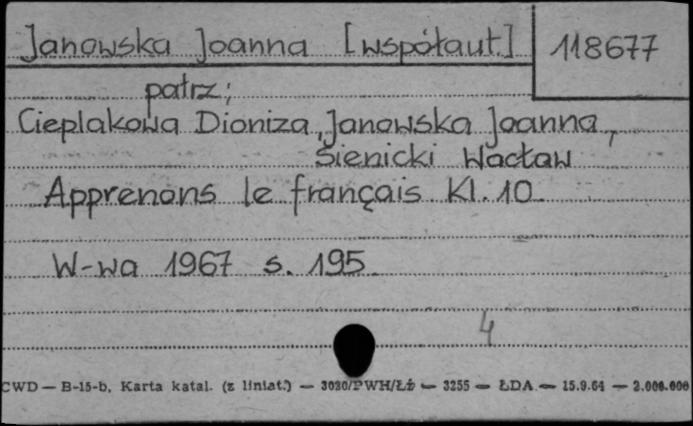 Janowska Joanna [współaut.] 118677
patrz;
Cieplakowa Dioniza, Janowska Joanna,
Sienicki Wacław
Apprenons le français Kl. 10.
W-wa 1967 s. 195.
4
CWD — B-15-b, Karta katal. (z liniat.) — 3030/PWH/Łż — 3255 — ŁDA — 15.9.64 — 2.000.000